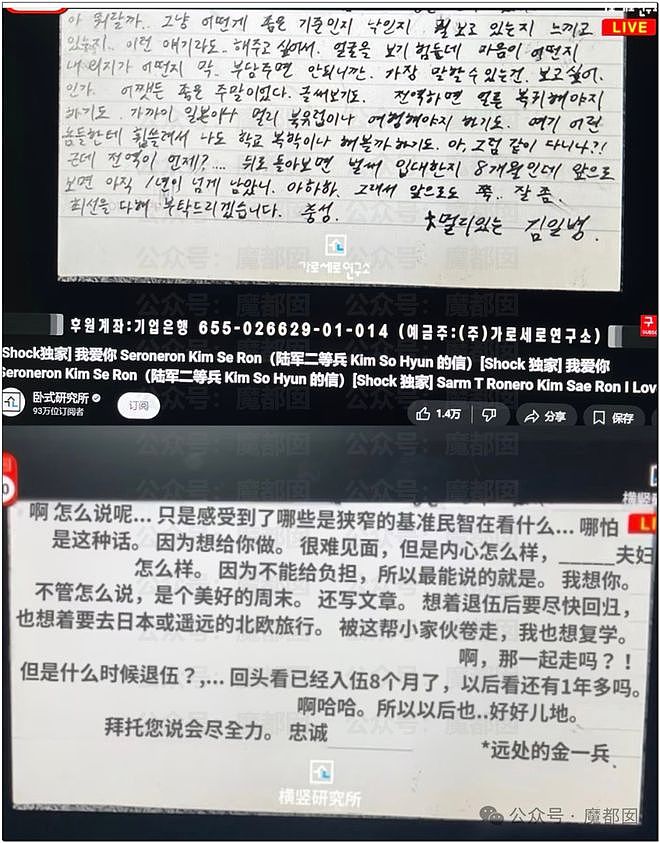 아 뭐랄까.. 그냥 어떻게 좁은 기준인지 낙인지 뭘 보고 있는지 느끼고
LIVE
있는지.. 이런 얘기라도.. 해주고 싶어서. 얼굴을 보기 힘들데 마음이 어떤지
내 의지가 어떤지 막.. 부담주면 안되니깐. 가장 말할 수 있는건. 보고싶어.
인가. 어쨌든 좋은 주말이었다. 글써보기도. 전역하면 얼른 복귀해야지
하기도. 가까이 일본이나 멀리 북유럽이나 여행해야지 하기도. 여기 어린
놈들한테 휩쓸려서 나도 학교 복학이나 해볼까 하기도. 아, 그럼 같이 다니나?!
근데 전역이 언제?.... 뒤로 돌아보면 벌써 입대한지 8개월인데 앞으로
보면 아직 1년이 넘게 남았니. 아하하. 그래서 앞으로도 쭉.. 잘 좀.
최선을 다해 부탁드리겠습니다. 충성.
*멀리있는 김일병.
가로세로연구소
후원계좌:기업은행 655-026629-01-014 (예금주:(주)가로세로연구소)
구
[Shock独家] 我爱你 Seroneron Kim Se Ron（陆军二等兵 Kim So Hyun 的信）[Shock 独家] 我爱你
Seroneron Kim Se Ron（陆军二等兵 Kim So Hyun 的信）[Shock 独家] Sarm T Ronero Kim Sae Ron I Lov
卧式研究所
93万位订阅者
订阅
1.4万
分享
保存
横竖
啊 怎么说呢... 只是感受到了哪些是狭窄的基准民智在看什么... 哪怕
LI
是这种话。 因为想给你做。 很难见面，但是内心怎么样，_____夫妇
怎么样。 因为不能给负担，所以最能说的就是。 我想你。
不管怎么说，是个美好的周末。 还写文章。 想着退伍后要尽快回归，
也想着要去日本或遥远的北欧旅行。 被这帮小家伙卷走，我也想复学。
啊，那一起走吗？！
但是什么时候退伍？,... 回头看已经入伍8个月了，以后看还有1年多吗。
啊哈哈。所以以后也..好好儿地。
拜托您说会尽全力。 忠诚
*远处的金一兵
横竖研究所
公众号 · 魔都囡